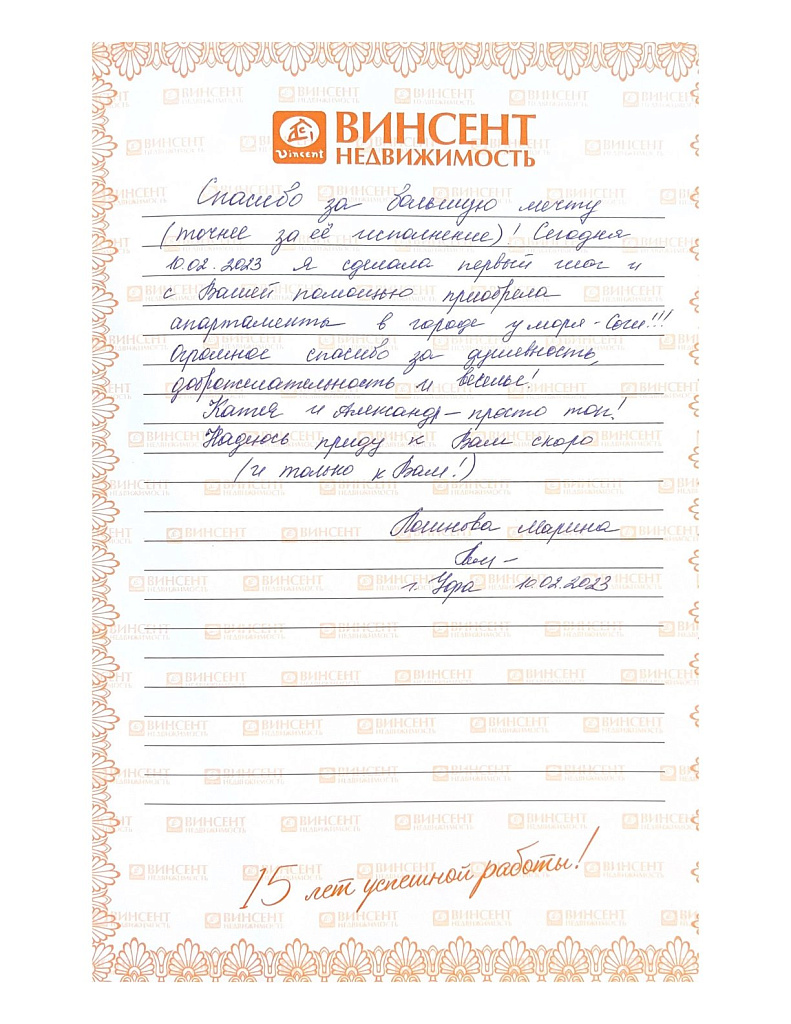 Vincent
ВИНСЕНТ
НЕДВИЖИМОСТЬ
Спасибо за большую мечту
(точнее за её исполнение)! Сегодня
10.02.2023 я сделала первый шаг и
с Вашей помощью приобрела
апартаменты в городе у моря - Сочи!!!
Огромное спасибо за душевность,
доброжелательность и веселье!
Катя и Александр – просто топ!
Надеюсь приду к Вам скоро
(и только к Вам!)
Марина
г. Уфа 10.02.2023
15 лет успешной работы!